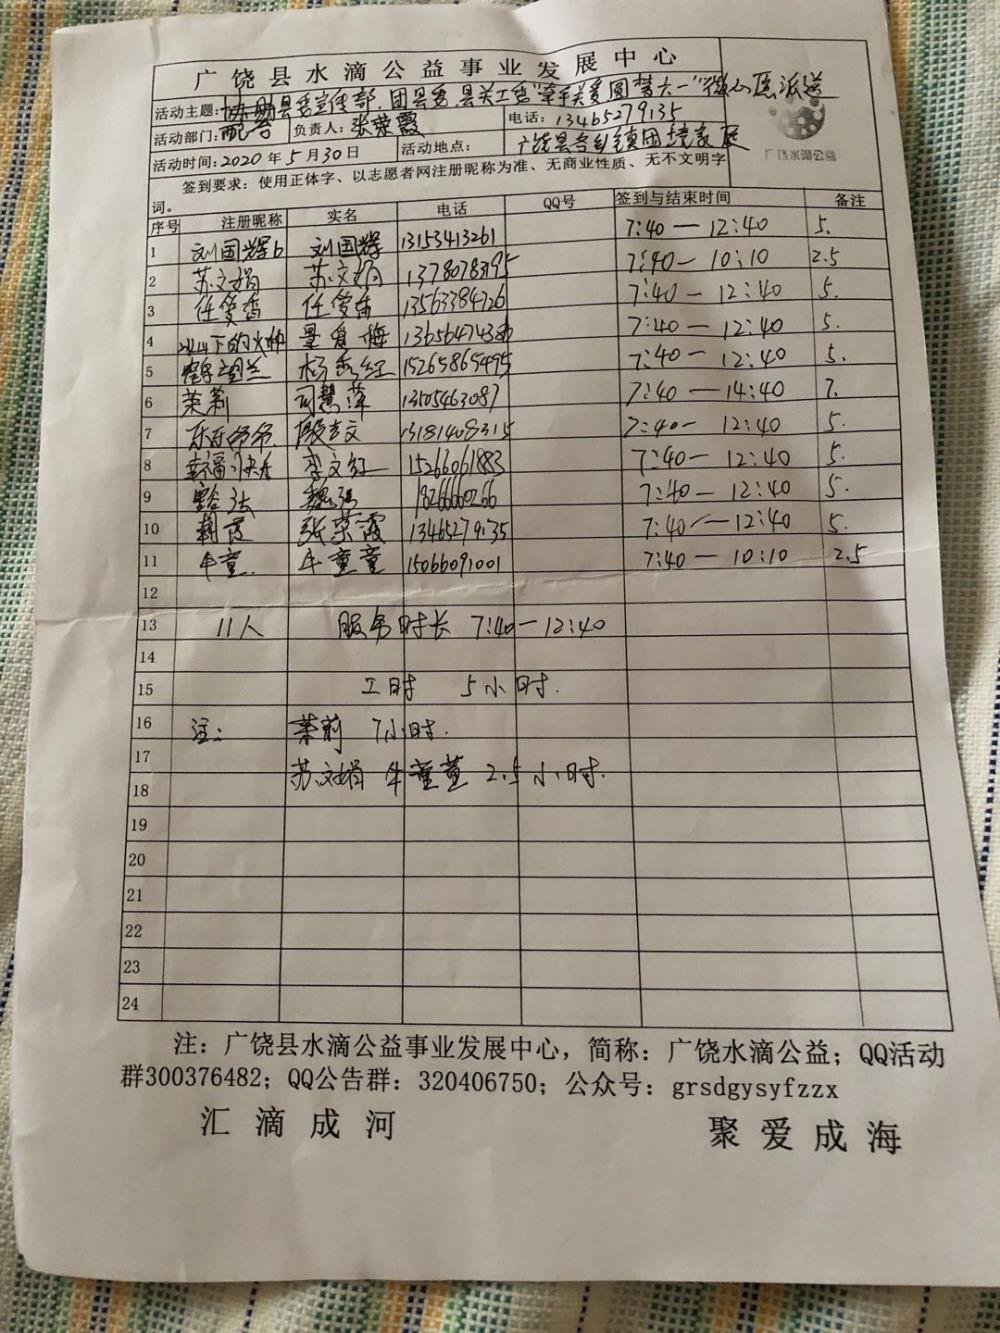 广饶县水滴公益事业发展中心
活动主题：协助县委宣传部、团县委、县关工委"牵手关爱圆梦六一"微心愿派送
活动部门：配合 负责人：张荣霞 电话：13465279135
活动时间：2020年5月30日 活动地点：广饶县各乡镇困境家庭
广饶水滴公益
签到要求：使用正体字、以志愿者网注册昵称为准、无商业性质、无不文明字
词。
序号 注册昵称 实名 电话 QQ号 签到与结束时间 备注
1 刘国辉6 刘国辉 13153413261 7:40—12:40 5.
2 苏文娟 苏文娟 13780783195 7:40—10:10 2.5
3 任爱香 任爱香 13563384726 7:40—12:40 5.
4 冰山下的火种 爱梅 7:40—12:40 5.
5 杨秀红 15265865495 7:40—12:40 5.
6 茉莉 司慧萍 13105463087 7:40—14:40 7.
7 乐乐爷爷 殷志文 13181408315 7:40—12:40 5.
8 幸福快乐 李文红 15266061883 7:40—12:40 5.
9 魏强 18266660266 7:40—12:40 5.
10 张荣霞 13465279135 7:40—12:40 5.
11 牛童 牛童童 15066091001 7:40—10:10 2.5
12
13 11人 服务时长 7:40—12:40
14
15 工时 5小时.
16 注： 茉莉 7小时.
17
18 苏文娟 牛童童 2.5小时.
19
20
21
22
23
24
注：广饶县水滴公益事业发展中心，简称：广饶水滴公益；QQ活动
群300376482；QQ公告群：320406750；公众号：grsdgysyfzzx
汇滴成河 聚爱成海